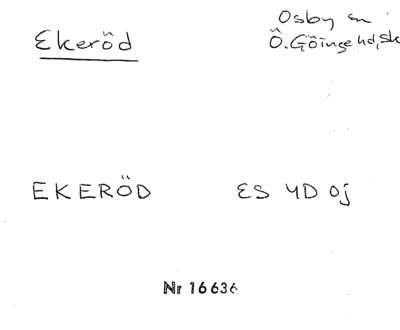 Osby sn
Ekeröd
Ö. Göinge hd, Sk
EKERÖD ES 4D 0j
Nr 16636